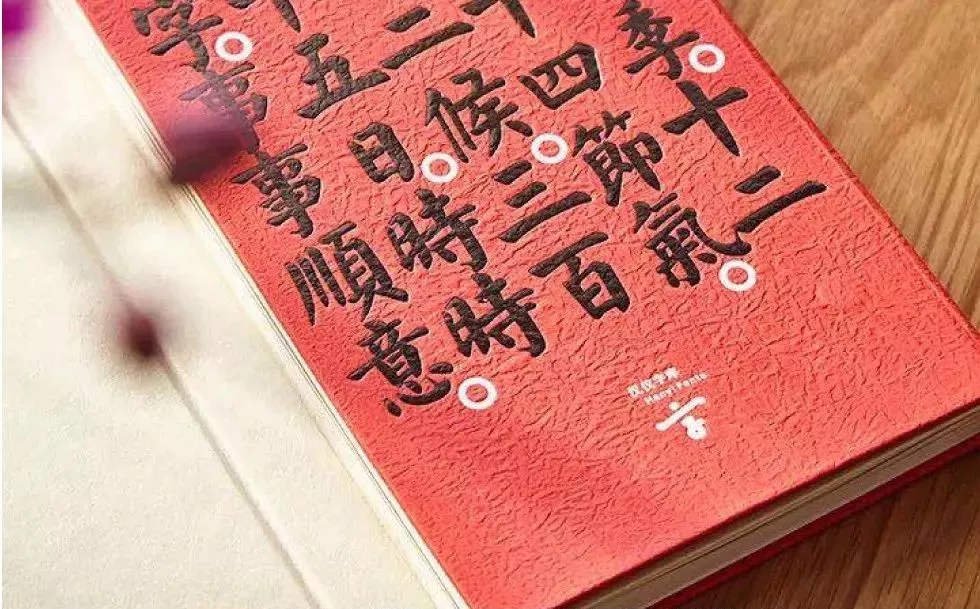 季。十二
十四節氣。
二候。三百
五日。時時
字。事事順意。
汉仪字库
Hanyi Fonts